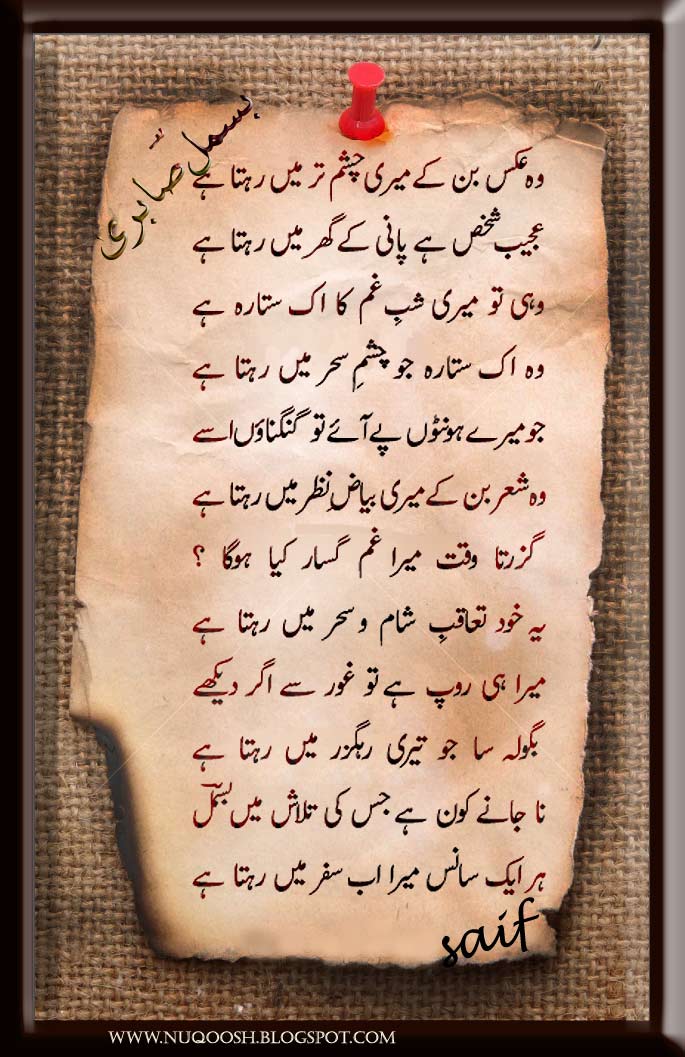 بسمل صابری
وہ عکس بن کے میری چشم تر میں رہتا ہے
عجیب شخص ہے پانی کے گھر میں رہتا ہے
وہی تو میری شبِ غم کا اک ستارہ ہے
وہ اک ستارہ جو چشمِ سحر میں رہتا ہے
جو میرے ہونٹوں پے آئے تو گنگناؤں اسے
وہ شعر بن کے میری بیاضِ نظر میں رہتا ہے
گزرتا وقت میرا غم گسار کیا ہوگا ؟
یہ خود تعاقبِ شام و سحر میں رہتا ہے
میرا ہی روپ ہے تو غور سے اگر دیکھے
بگولہ سا جو تیری رہگزر میں رہتا ہے
نا جانے کون ہے جس کی تلاش میں بسمل
ہر ایک سانس میرا اب سفر میں رہتا ہے
saif
WWW.NUQOOSH.BLOGSPOT.COM